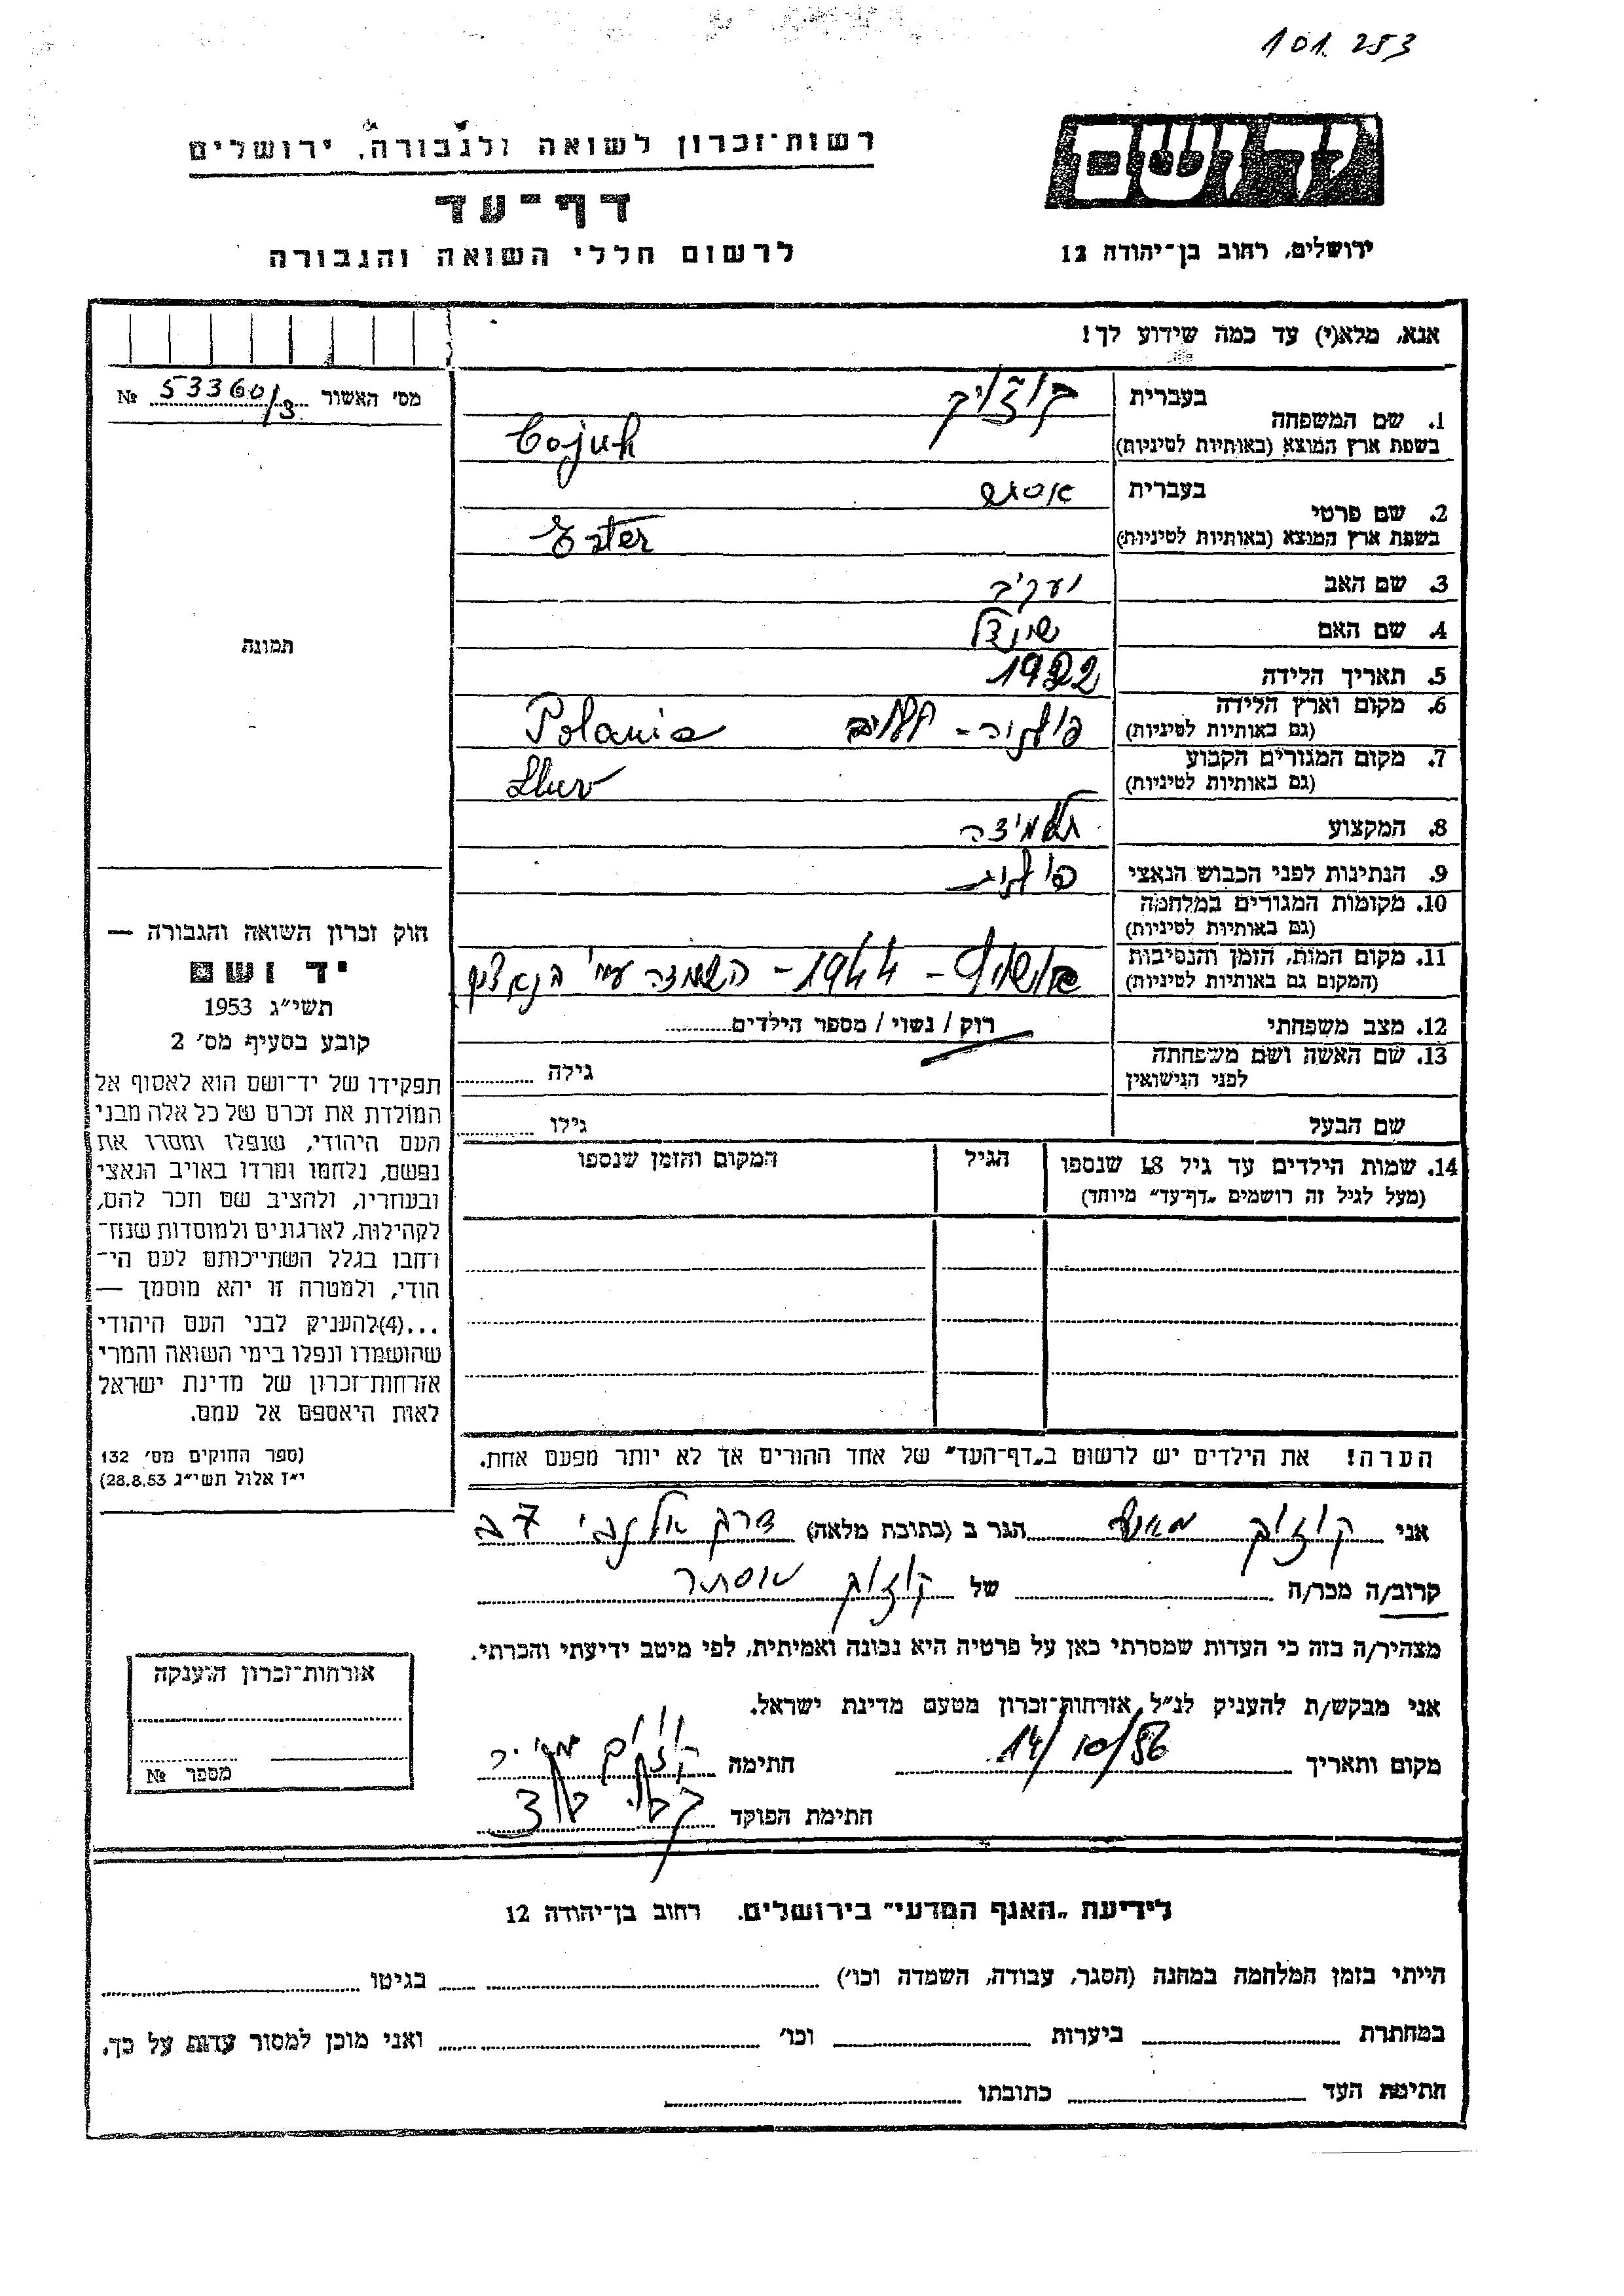 101.253
יד ושם
רשות־זכרון לשואה ולגבורה, ירושלים
דף־עד
לרשום חללי השואה והגבורה
ירושלים, רחוב בן־יהודה 12
אנא, מלא(י) עד כמה שידוע לך!
מס' האשור 53360/3 №
תמונה
1. שם המשפחה
בעברית
בשפת ארץ המוצא (באותיות לטיניות) Cojuk
2. שם פרטי
בעברית אסתר
בשפת ארץ המוצא (באותיות לטיניות) Ester
3. שם האב יעקב
4. שם האם שינדל
5. תאריך הלידה 1922
6. מקום וארץ הלידה
(גם באותיות לטיניות) פולניה - Polania
7. מקום המגורים הקבוע
(גם באותיות לטיניות)
8. המקצוע תלמידה
9. הנתינות לפני הכבוש הנאצי פולנית
10. מקומות המגורים במלחמה
(גם באותיות לטיניות)
11. מקום המות, הזמן והנסיבות
(המקום גם באותיות לטיניות) - 1944 - השמדה ע"י הנאצים
12. מצב משפחתי רוק / נשוי / מספר הילדים
13. שם האשה ושם משפחתה
לפני הנישואין גילה
שם הבעל גילו
14. שמות הילדים עד גיל 18 שנספו הגיל המקום והזמן שנספו
(מעל לגיל זה רושמים „דף־עד" מיוחד)
הערה! את הילדים יש לרשום ב„דף־העד" של אחד ההורים אך לא יותר מפעם אחת.
חוק זכרון השואה והגבורה —
יד ושם
תשי"ג 1953
קובע בסעיף מס' 2
תפקידו של יד־ושם הוא לאסוף אל
המולדת את זכרם של כל אלה מבני
העם היהודי, שנפלו ומסרו את
נפשם, נלחמו ומרדו באויב הנאצי
ובעוזריו, ולהציב שם וזכר להם,
לקהילות, לארגונים ולמוסדות שנח־
רחבו בגלל השתייכותם לעם הי־
הודי, ולמטרה זו יהא מוסמך —
...(4)להעניק לבני העם היהודי
שהושמדו ונפלו בימי השואה והמרי
אזרחות־זכרון של מדינת ישראל
לאות היאספם אל עמם.
(ספר החוקים מס' 132
י"ז אלול תשי"ג 28.8.53)
אני הגר ב (כתובת מלאה) דרך אלנבי 7
קרוב/ה מכר/ה של אסתר
מצהיר/ה בזה כי העדות שמסרתי כאן על פרטיה היא נכונה ואמיתית, לפי מיטב ידיעתי והכרתי.
אני מבקש/ת להעניק לנ"ל אזרחות־זכרון מטעם מדינת ישראל.
מקום ותאריך 14/10/86 חתימה
חתימת הפוקד
אזרחות־זכרון הוענקה
מספר №
לידיעת „האגף המדעי" בירושלים. רחוב בן־יהודה 12
הייתי בזמן המלחמה במחנה (הסגר, עבודה, השמדה וכו') בגיטו
במחתרת ביערות וכו' ואני מוכן למסור עדות על כך.
חתימת העד כתובתו